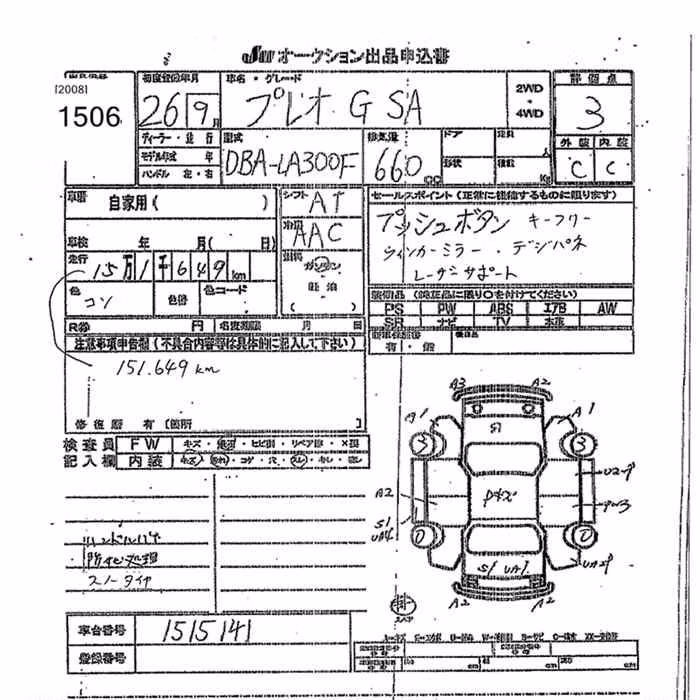 オークション出品申込書
[2008]
1506
初度登録年月
26 9月
車名・グレード
プレオ G SA
2WD
・
4WD
評価点
3
外装 内装
C C
ディーラー・並行
モデル年式 年
ハンドル 左・右
型式
DBA-LA300F
排気量
660 CC
ドア
形状
定員 人
積載 Kg
車歴
自家用( )
車検 年 月( 日)
走行
15万1千649km
色
コン
色替
色コード
シフト
AT
冷房
AAC
燃料
ガソリン
軽油
( )
セールスポイント(正常に機能するものに限ります)
プッシュボタン キーフリー
ウィンカーミラー・デジパネ
レーザーサポート
装備品(純正品に限り○を付けてください)
PS PW ABS エアB AW
SR ナビ TV 本革
R券 円 名変期限 月 日
有・無
注意事項申告欄(不具合内容等は具体的に記入して下さい)
151.649km
修復歴 有〔箇所 〕
検査員
記入欄
FW
内装
A3 A2
A1 A1
S1
3 3
A2
P
S1
0 0
S1 UA1
A2 A2
ハンドルハゲ
防サビ処理
スノータイヤ
車台番号
1515141
登録番号